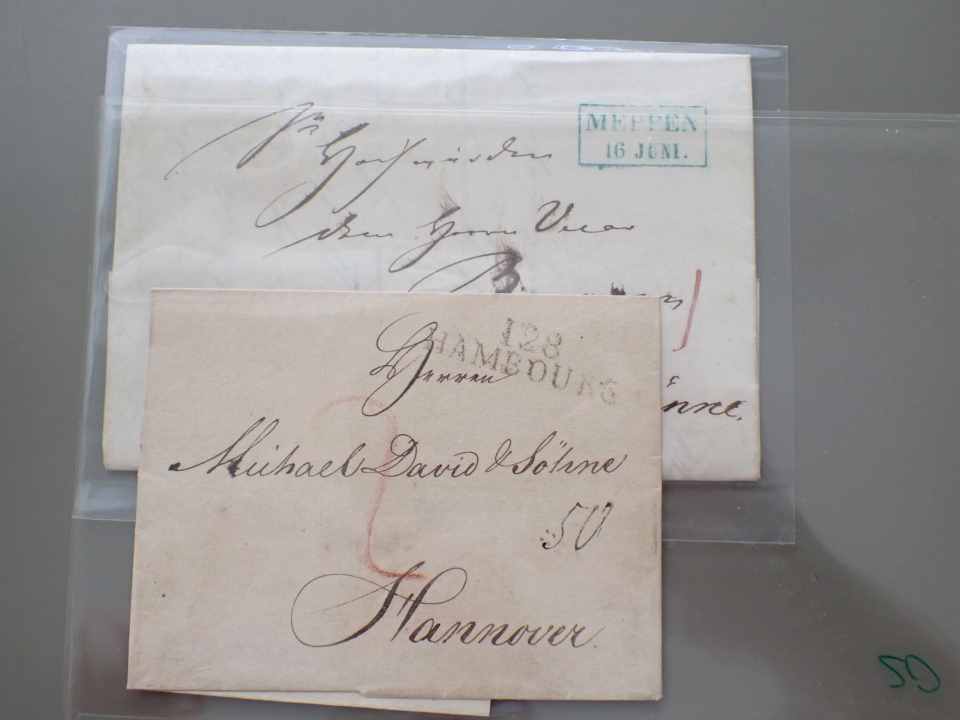 MEPPEN
16 JUNI.
Hochwürden
dem Herrn Vicar
128
HAMBOURG
Herren
Michael David & Söhne
50
Hannover.